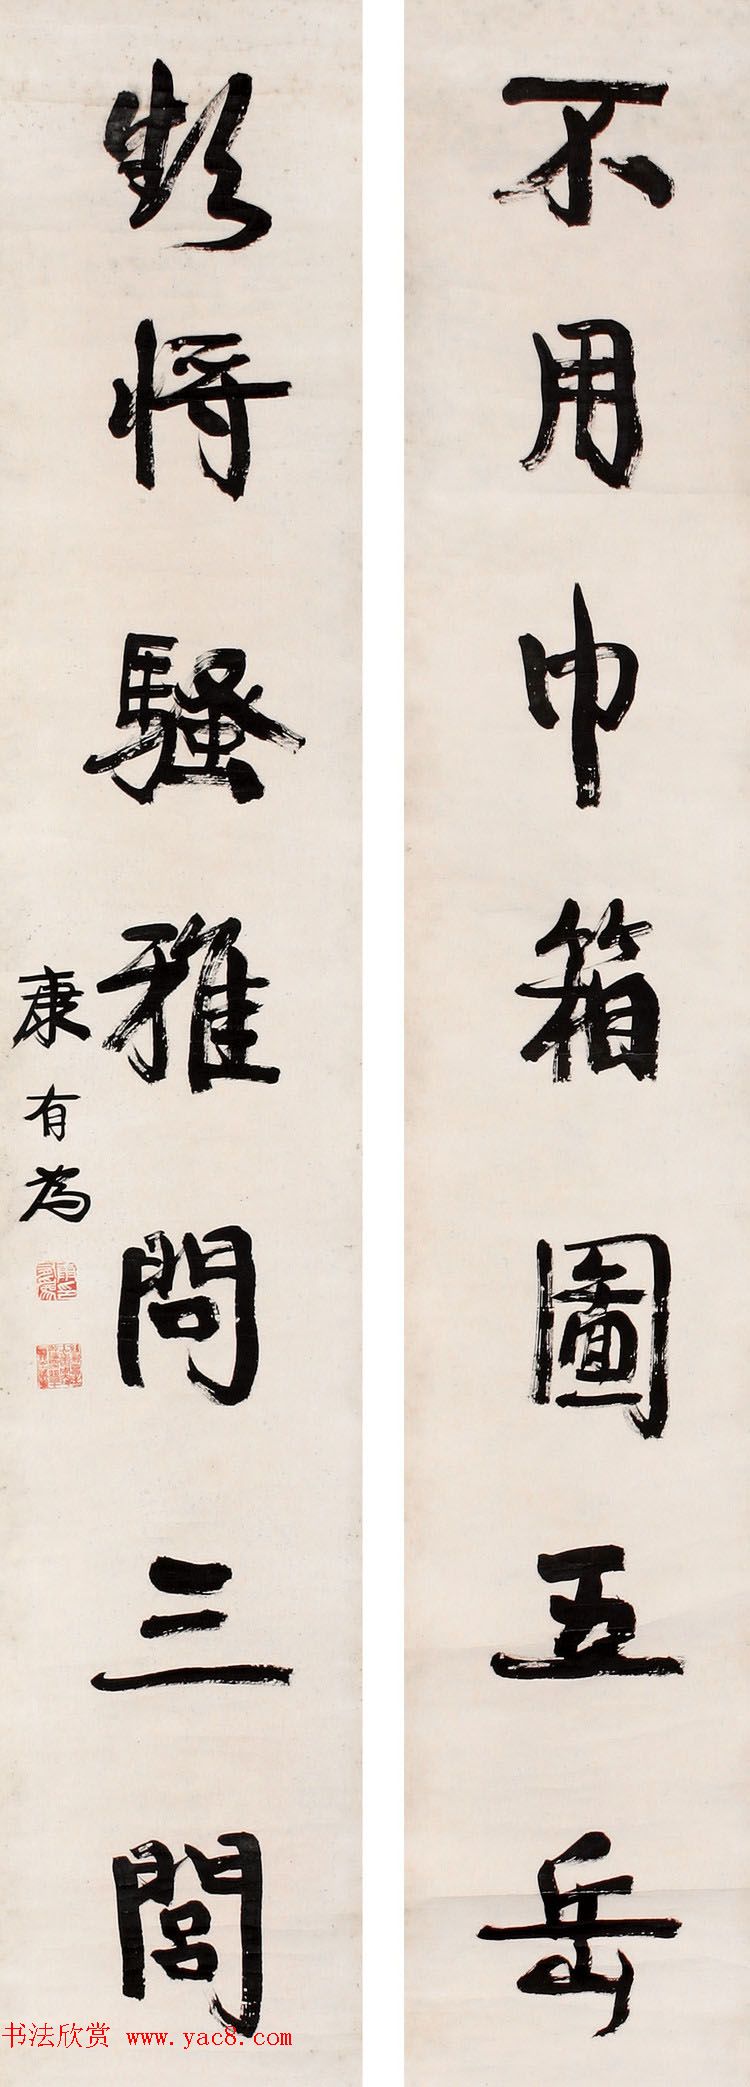 不用巾箱圖五岳
將騷雅問三閭
康有為
书法欣赏 www.yac8.com